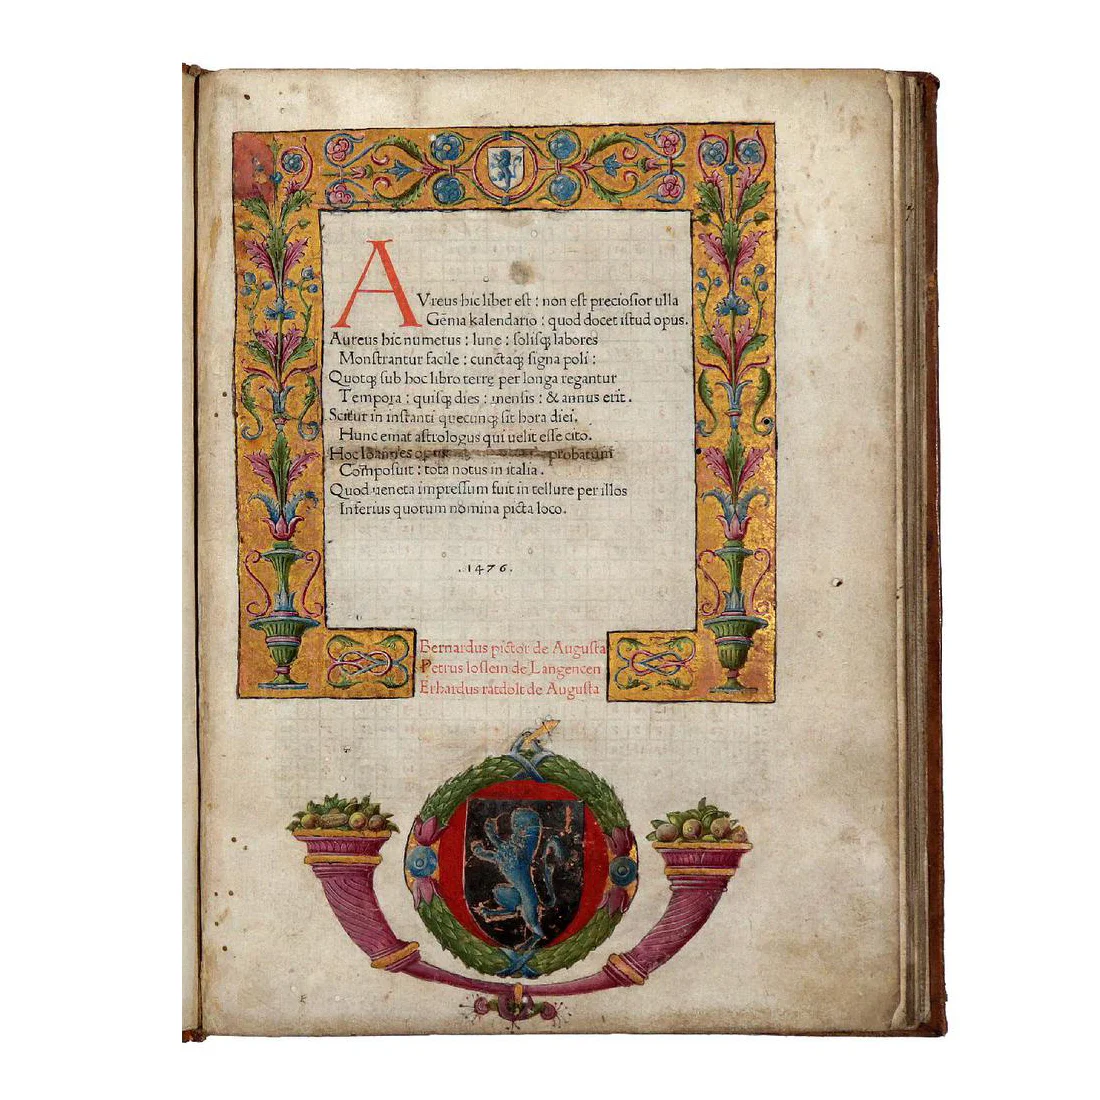 AVreus hic liber est : non est preciosior ulla
Gēma kalendario : quod docet istud opus.
Aureus hic numerus : lune : solisqꝫ labores
Monstrantur facile : cunctaqꝫ signa poli :
Quotqꝫ sub hoc libro terre per longa regantur
Tempora : quisqꝫ dies : mensis : & annus erit.
Scitur in instanti quecunqꝫ sit hora diei.
Hunc emat astrologus qui uelit esse cito.
Hoc Ioannes opus probatum
Composuit : tota notus in italia.
Quod ueneta impressum fuit in tellure per illos
Inferius quorum nomina picta loco.
.1476.
Bernardus pictor de Augusta
Petrus loslein de Langencen
Erhardus ratdolt de Augusta